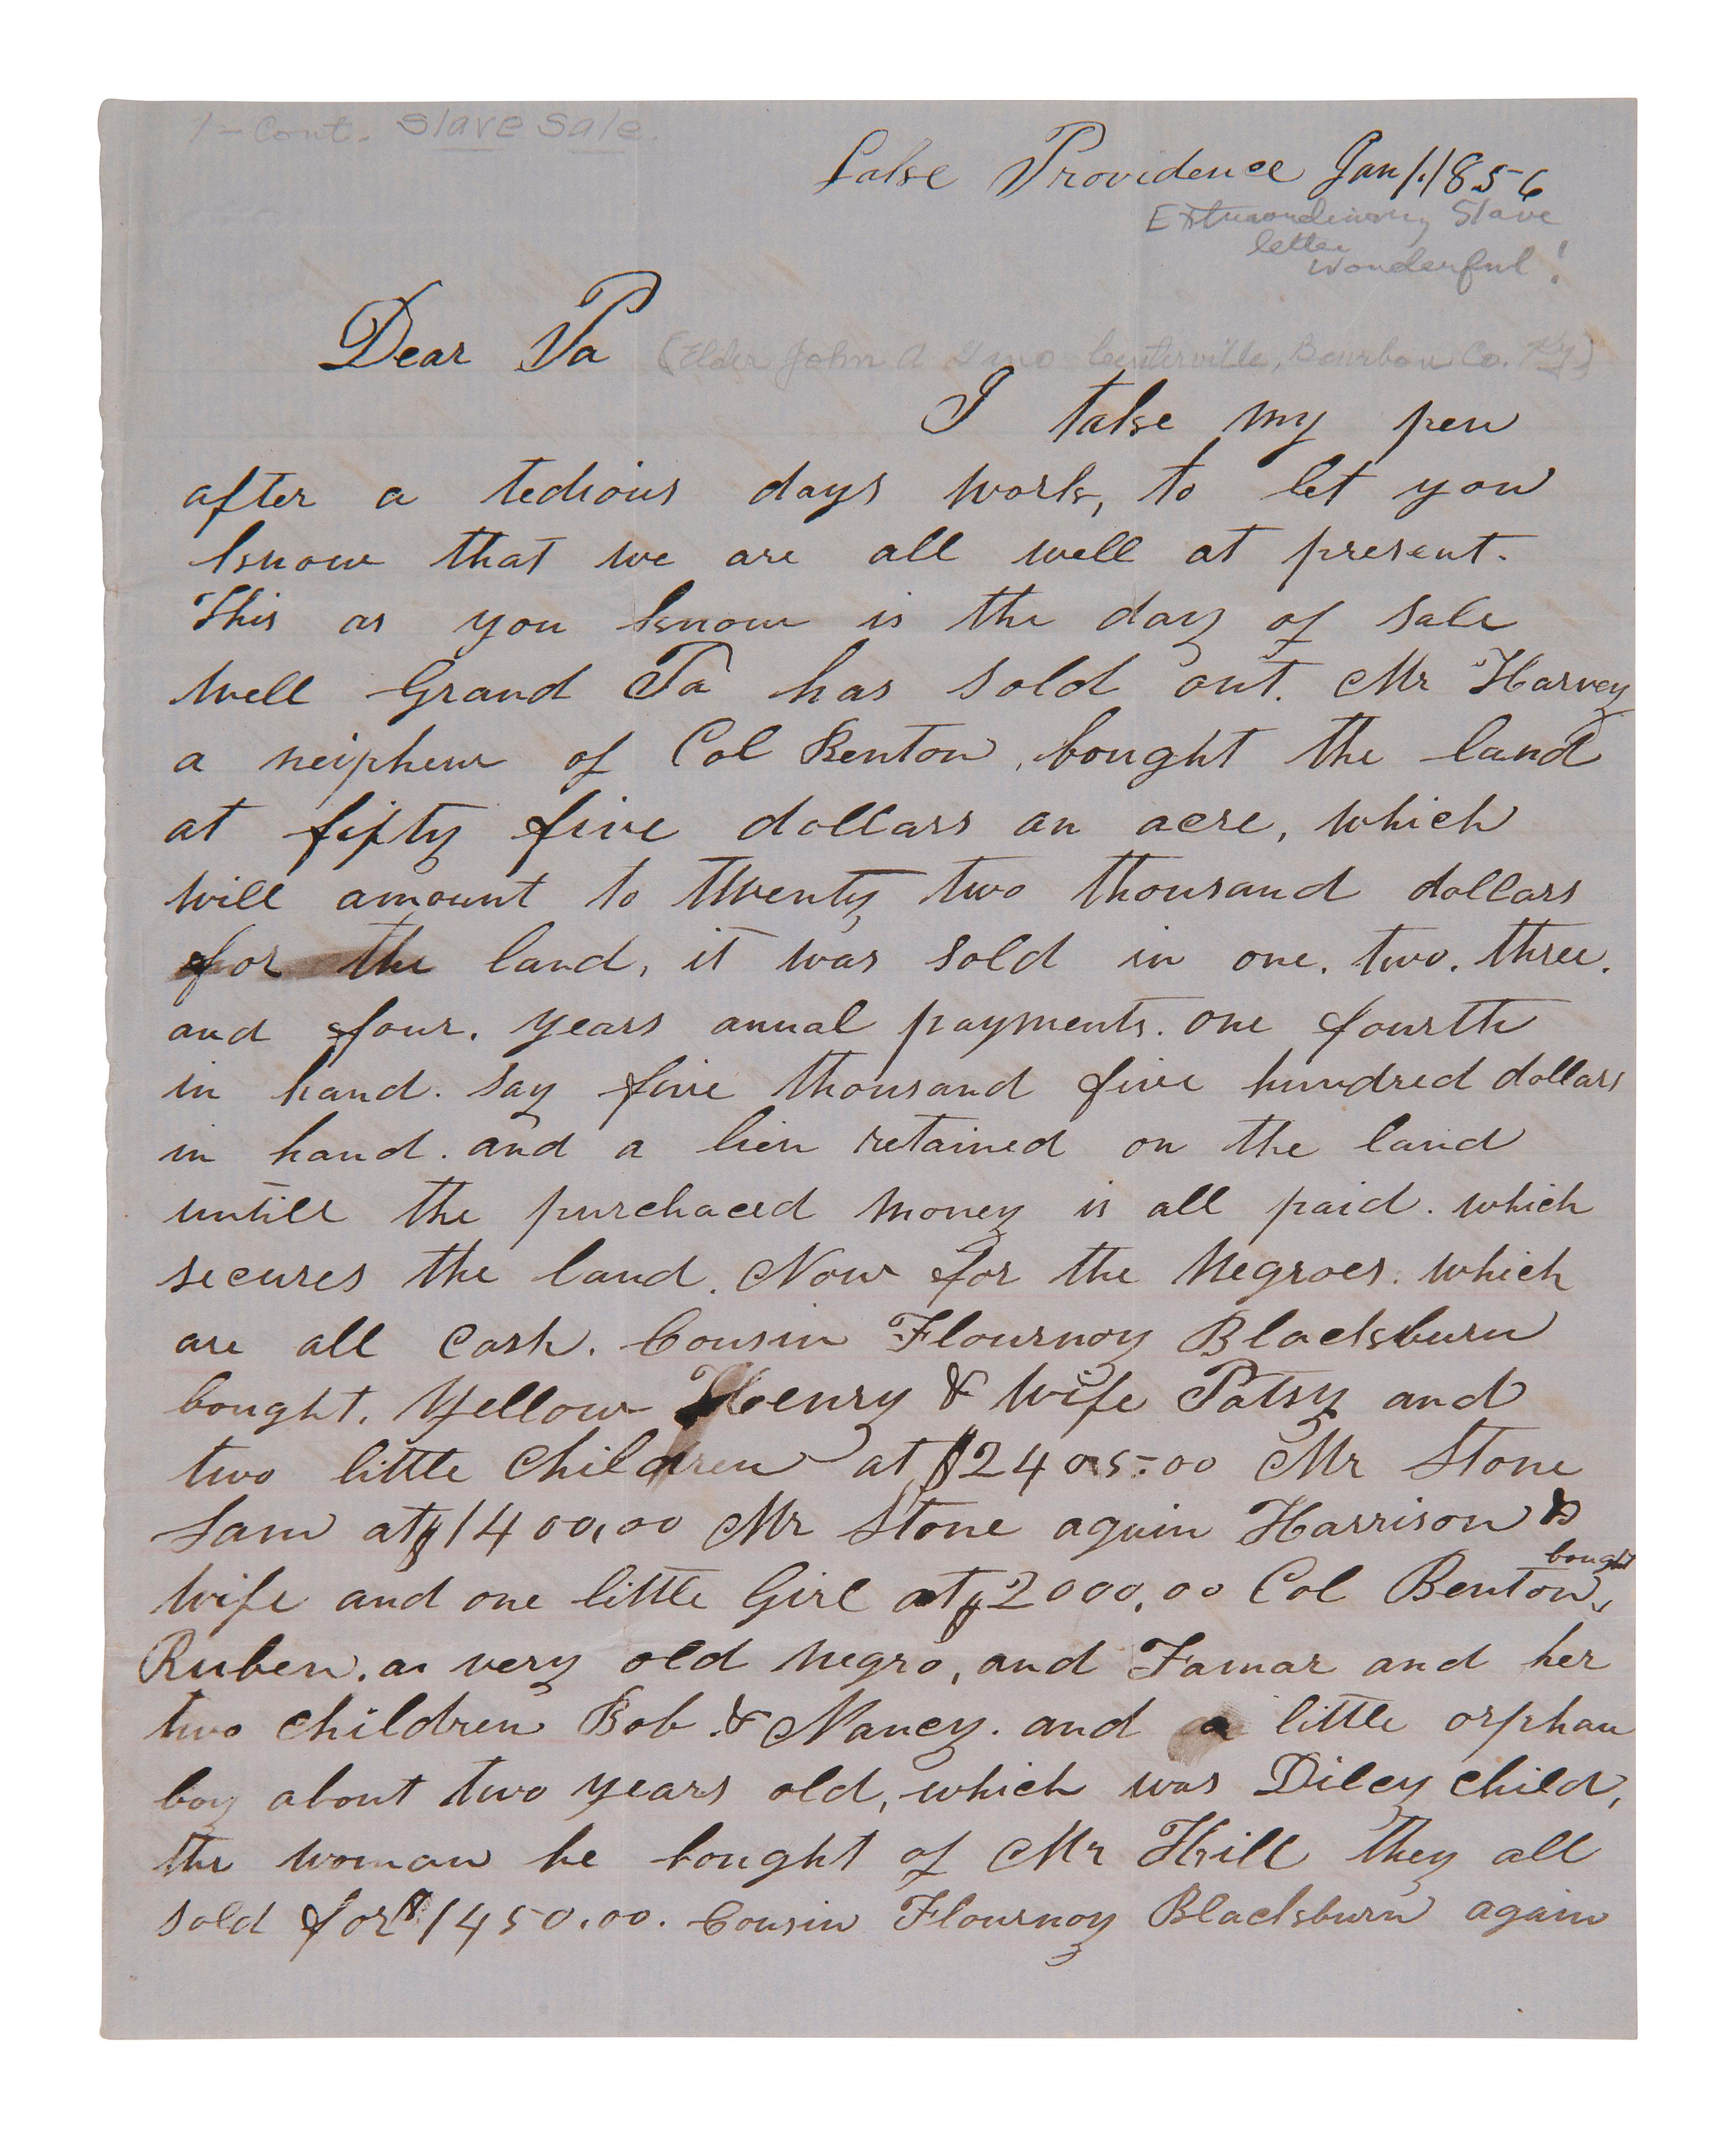 1 - Cont. Slave Sale.
Lake Providence Jan 1. 1856
Extraordinary Slave
letter
wonderful!
Dear Pa
(Elder John A Gano Centerville, Bourbon Co. Ky)
I take my pen
after a tedious days work, to let you
know that we are all well at present.
This as you know is the day of sale
well Grand Pa has sold out. Mr Harvey
a neiphew of Col Benton, bought the land
at fifty five dollars an acre, which
will amount to twenty two thousand dollars
for the land, it was sold in one. two. three.
and four. years anual payments. one fourth
in hand. say five thousand five hundred dollars
in hand. and a lien retained on the land
untill the purchaced money is all paid. which
secures the land. Now for the Negroes. which
are all cash. Cousin Flournoy Blackburn
bought. Yellow Henry & wife Patsy and
two little children at $2405.00 Mr Stone
Sam at $1400,00 Mr Stone again Harrison &
wife and one little Girl at $2000,00 Col Benton, bought
Ruben. a very old negro, and Tamar and her
two children Bob & Nancy. and a little orphan
boy about two years old, which was Dilcy child,
the woman he bought of Mr Hill they all
sold for $1450.00. Cousin Flournoy Blackburn again